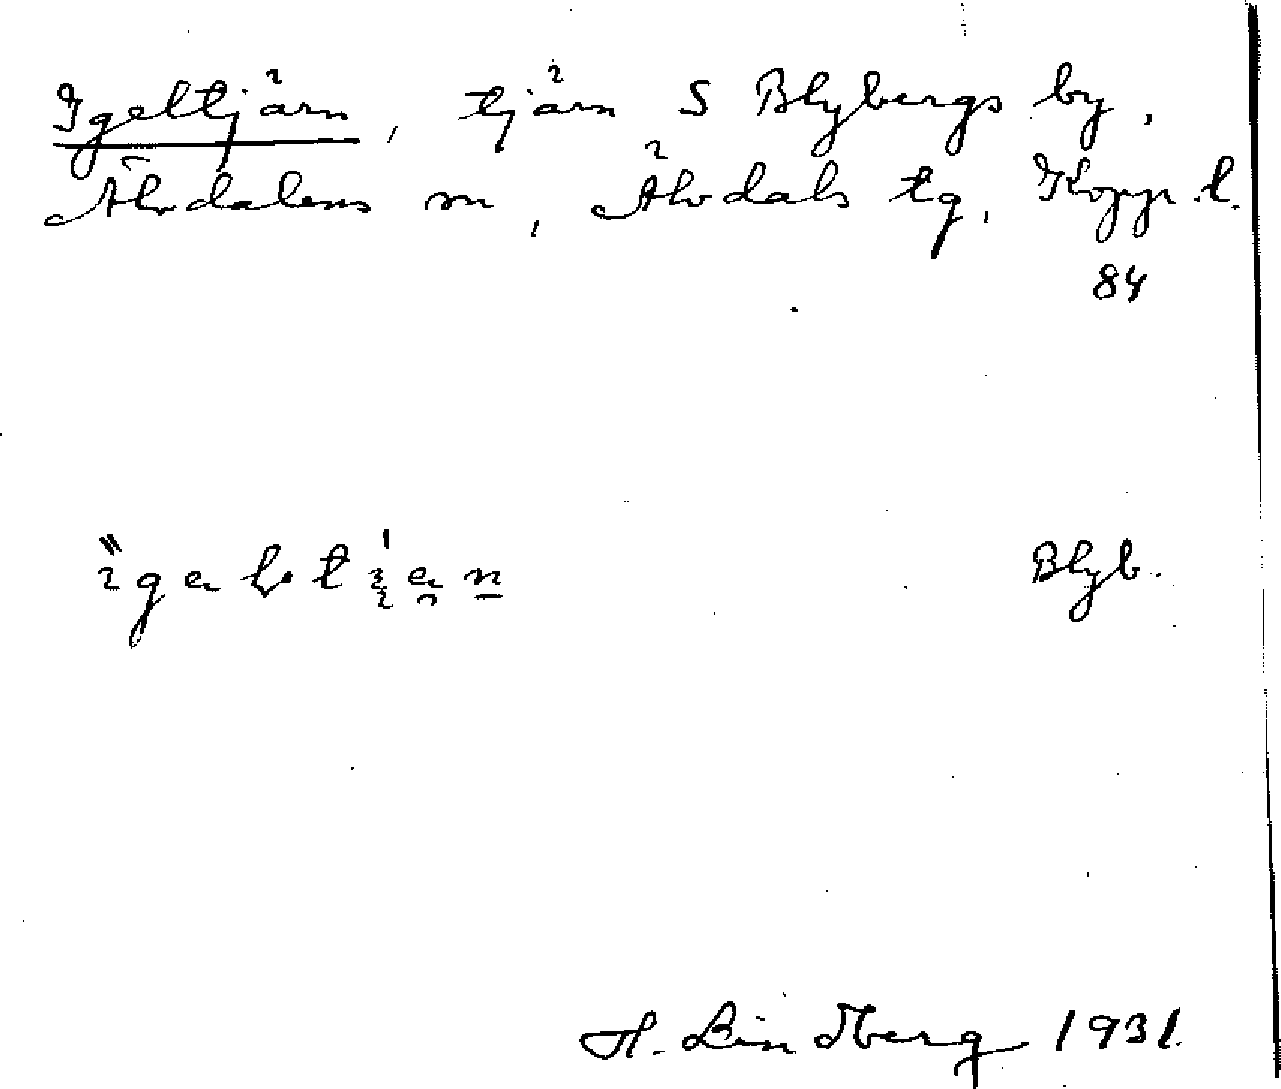 Igeltjärn, tjärn S Blybergs by,
Älvdalens sn, Älvdals tg, Kopp. l.
84
Blyb.
H. Lindberg 1931.